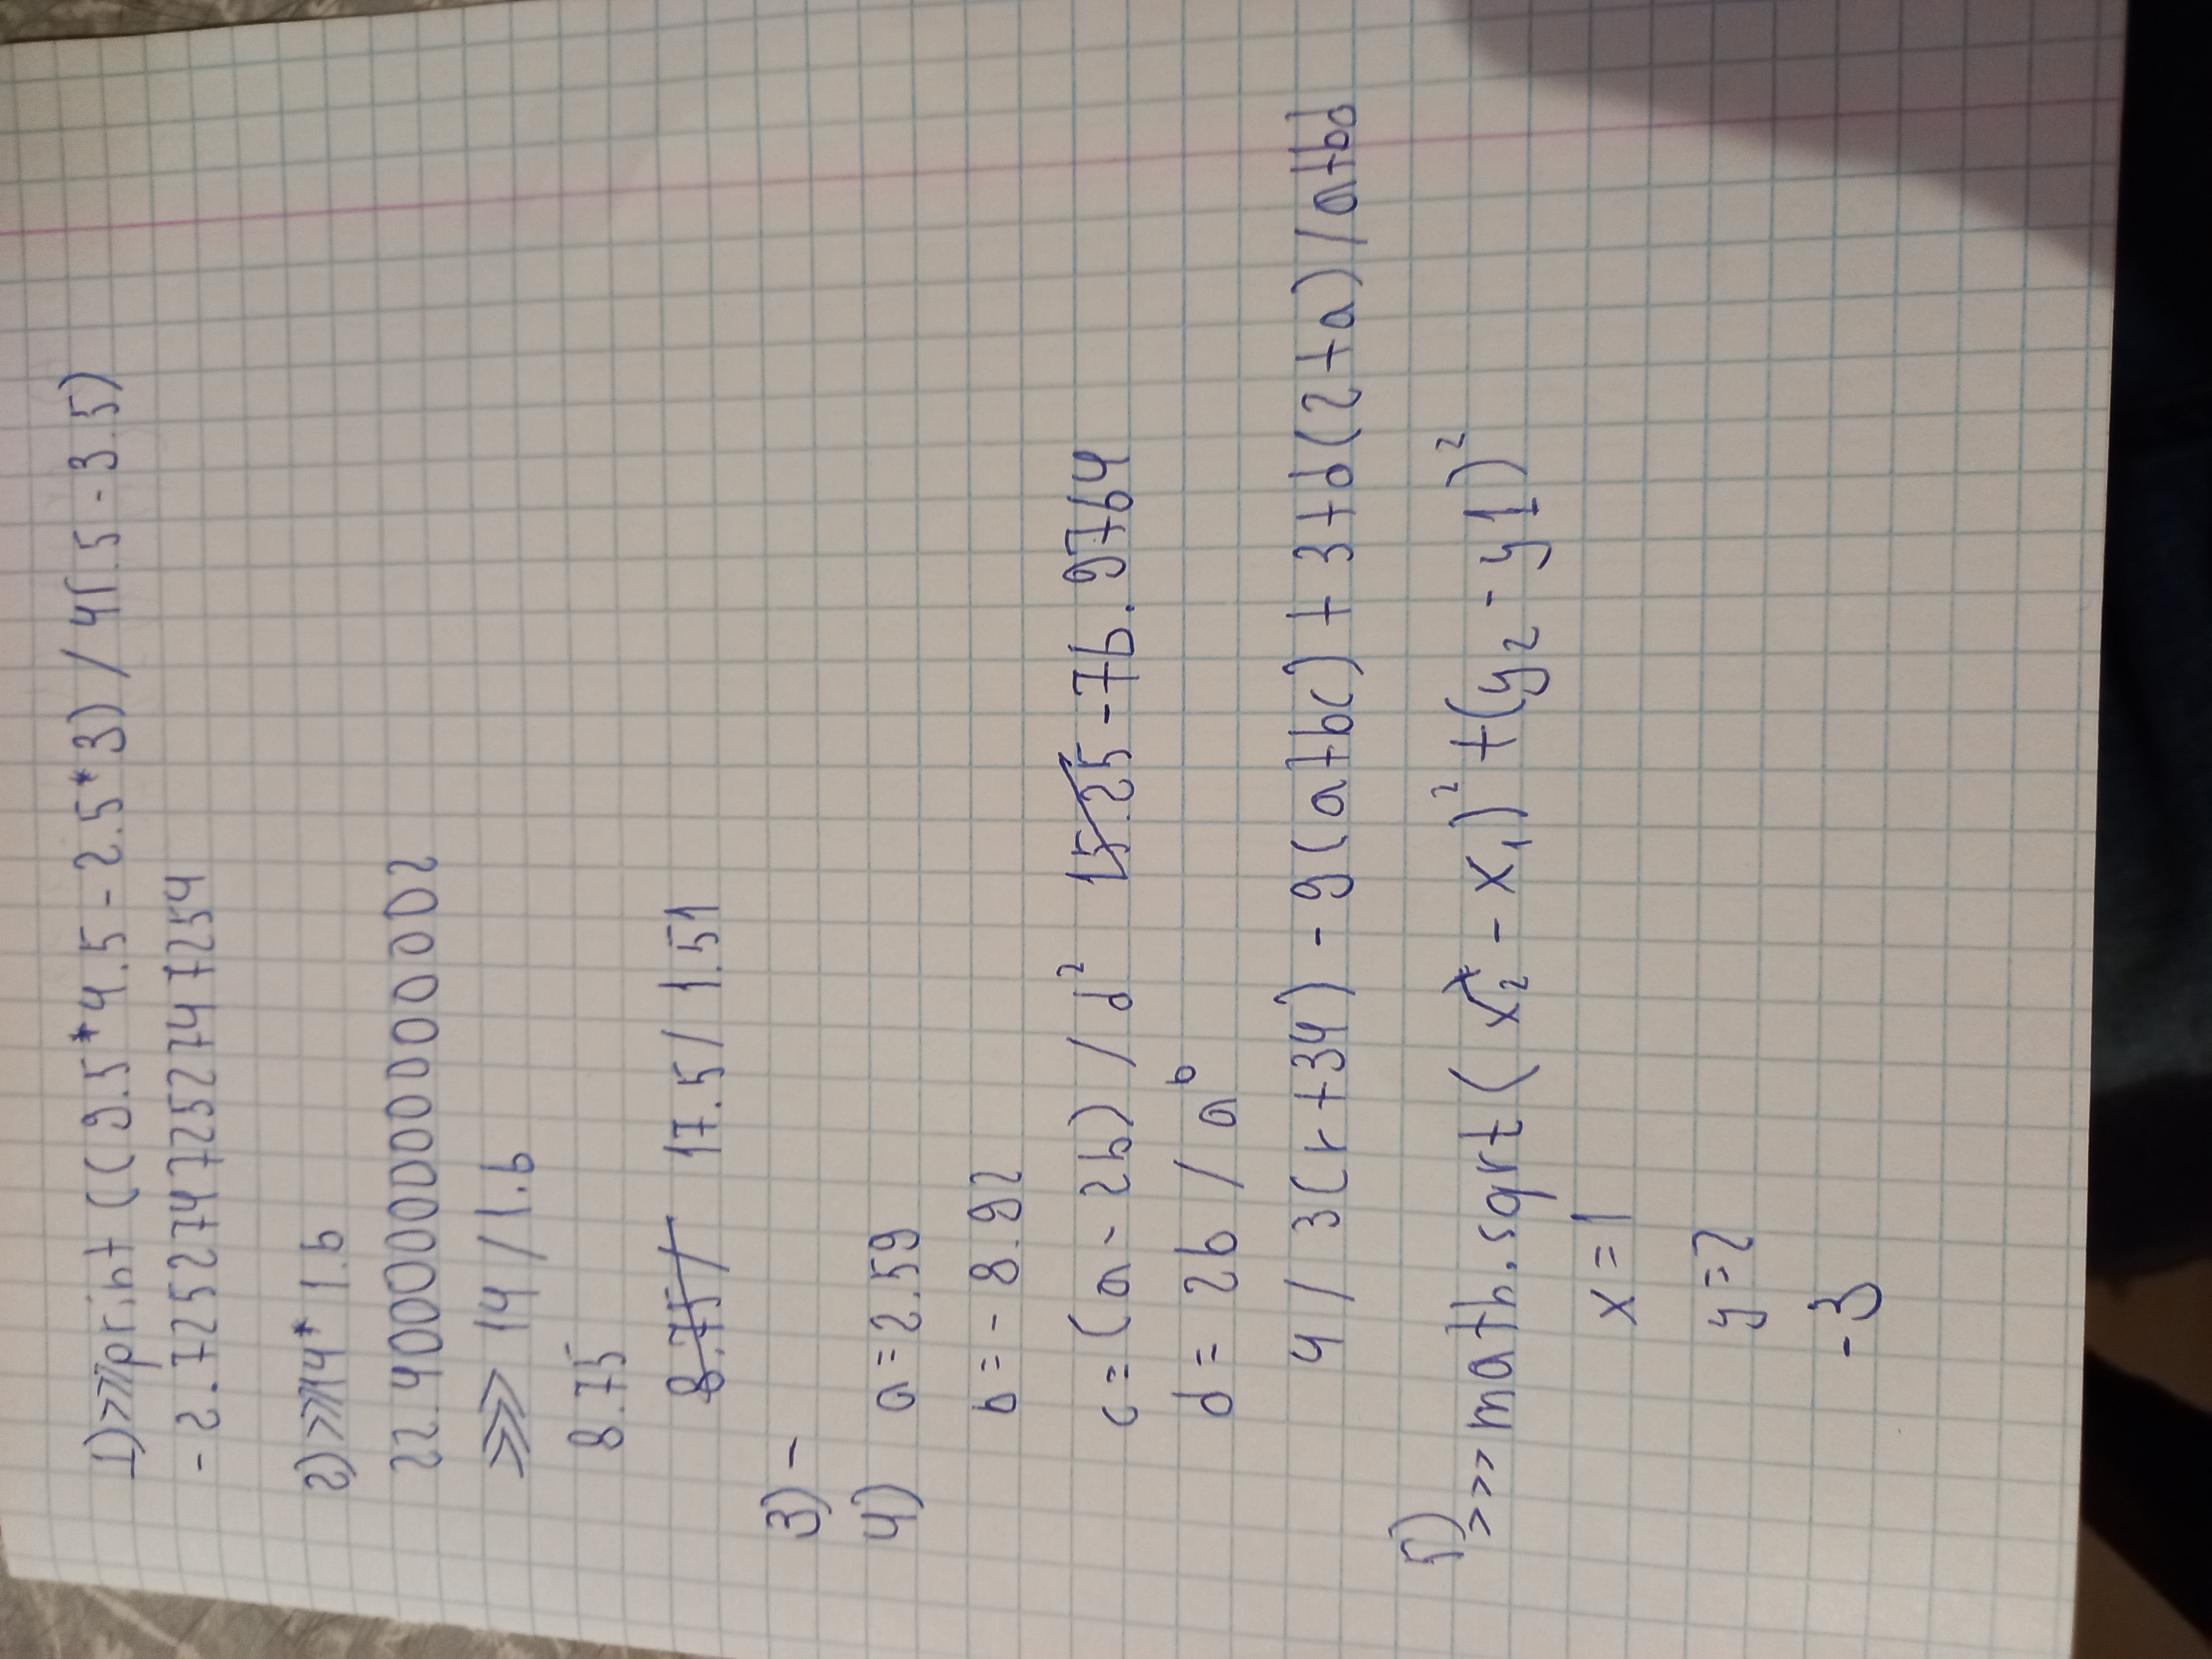 1) >>> print ((9.5*4.5-2.5*3) / 45.5-3.5)
-2.7252747252747254
2) >>> 14* 1.6
22.400000000000002
>>> 14 / 1.6
8.75
8.75 / 17.5 / 1.51
3) -
4) a=2.59
b=-8.92
c=(a-2b) / d² 15.25 -76.9764
d= 2b / a^b
4 / 3(r+34) - 9(a+bc) + 3+d(2+a) / a+bd
5)
>>> math.sqrt (x₂ - x₁)² + (y₂ - y1)²
x=1
y=2
-3